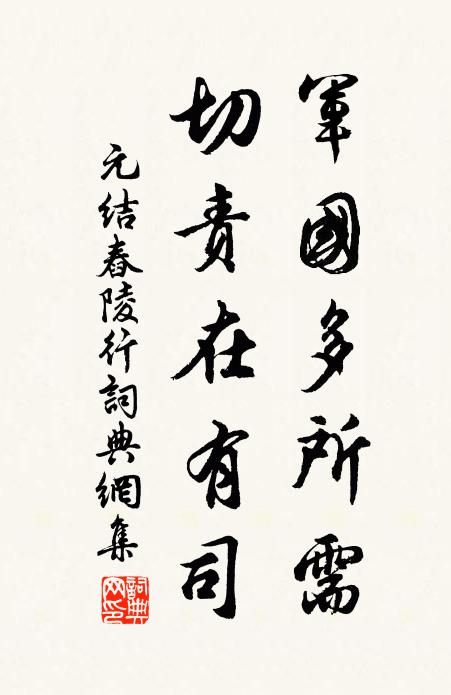 軍國多所需
切責在有司
元結舂陵行詞典網集
詞典網印